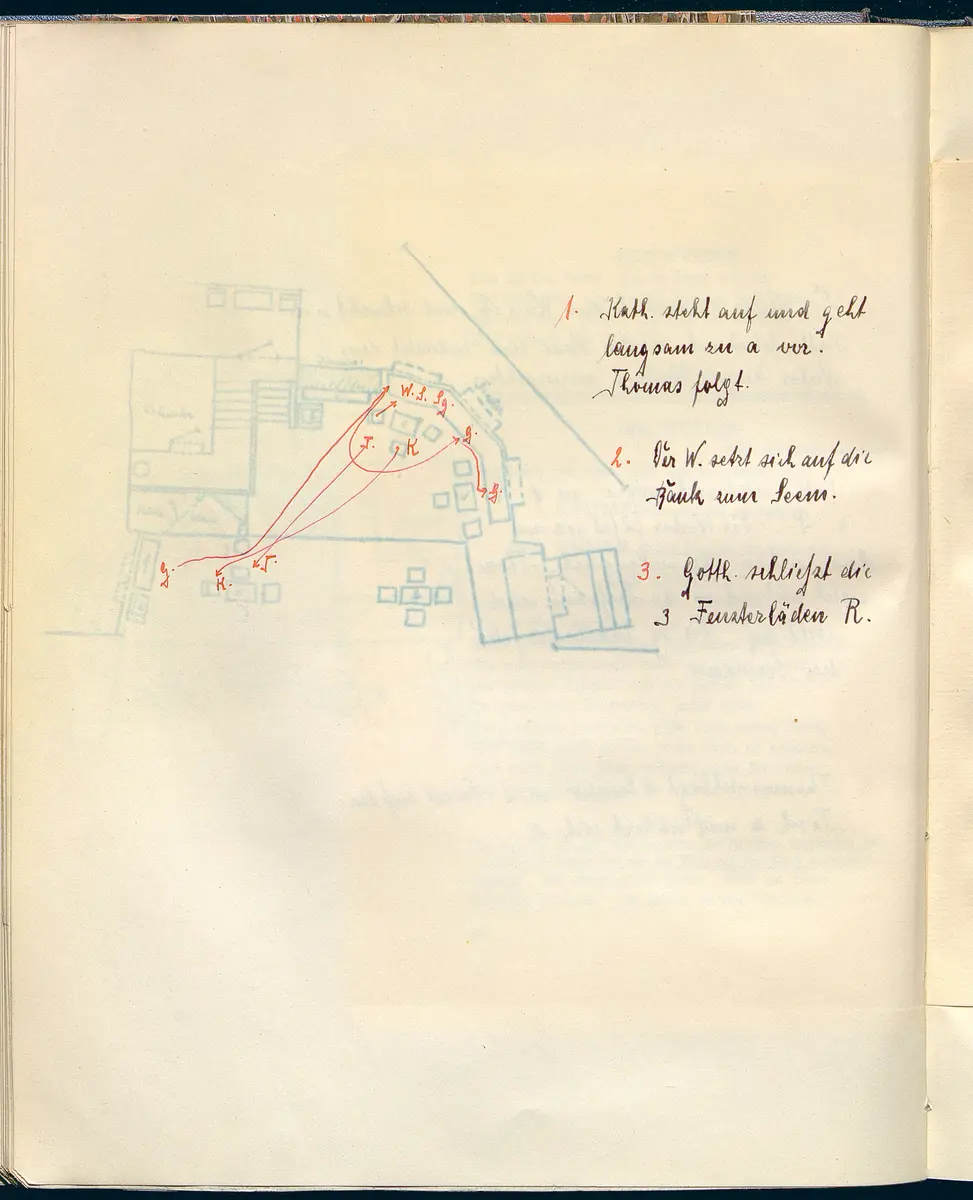 1. Kath. steht auf und geht
langsam zu a vor.
Thomas folgt.
2. Der W. setzt sich auf die
Bank zum Seem.
3. Gotth. schließt die
3 Fensterläden R.
W. S. Sg.
g.
T. K
g.
g. K. T.